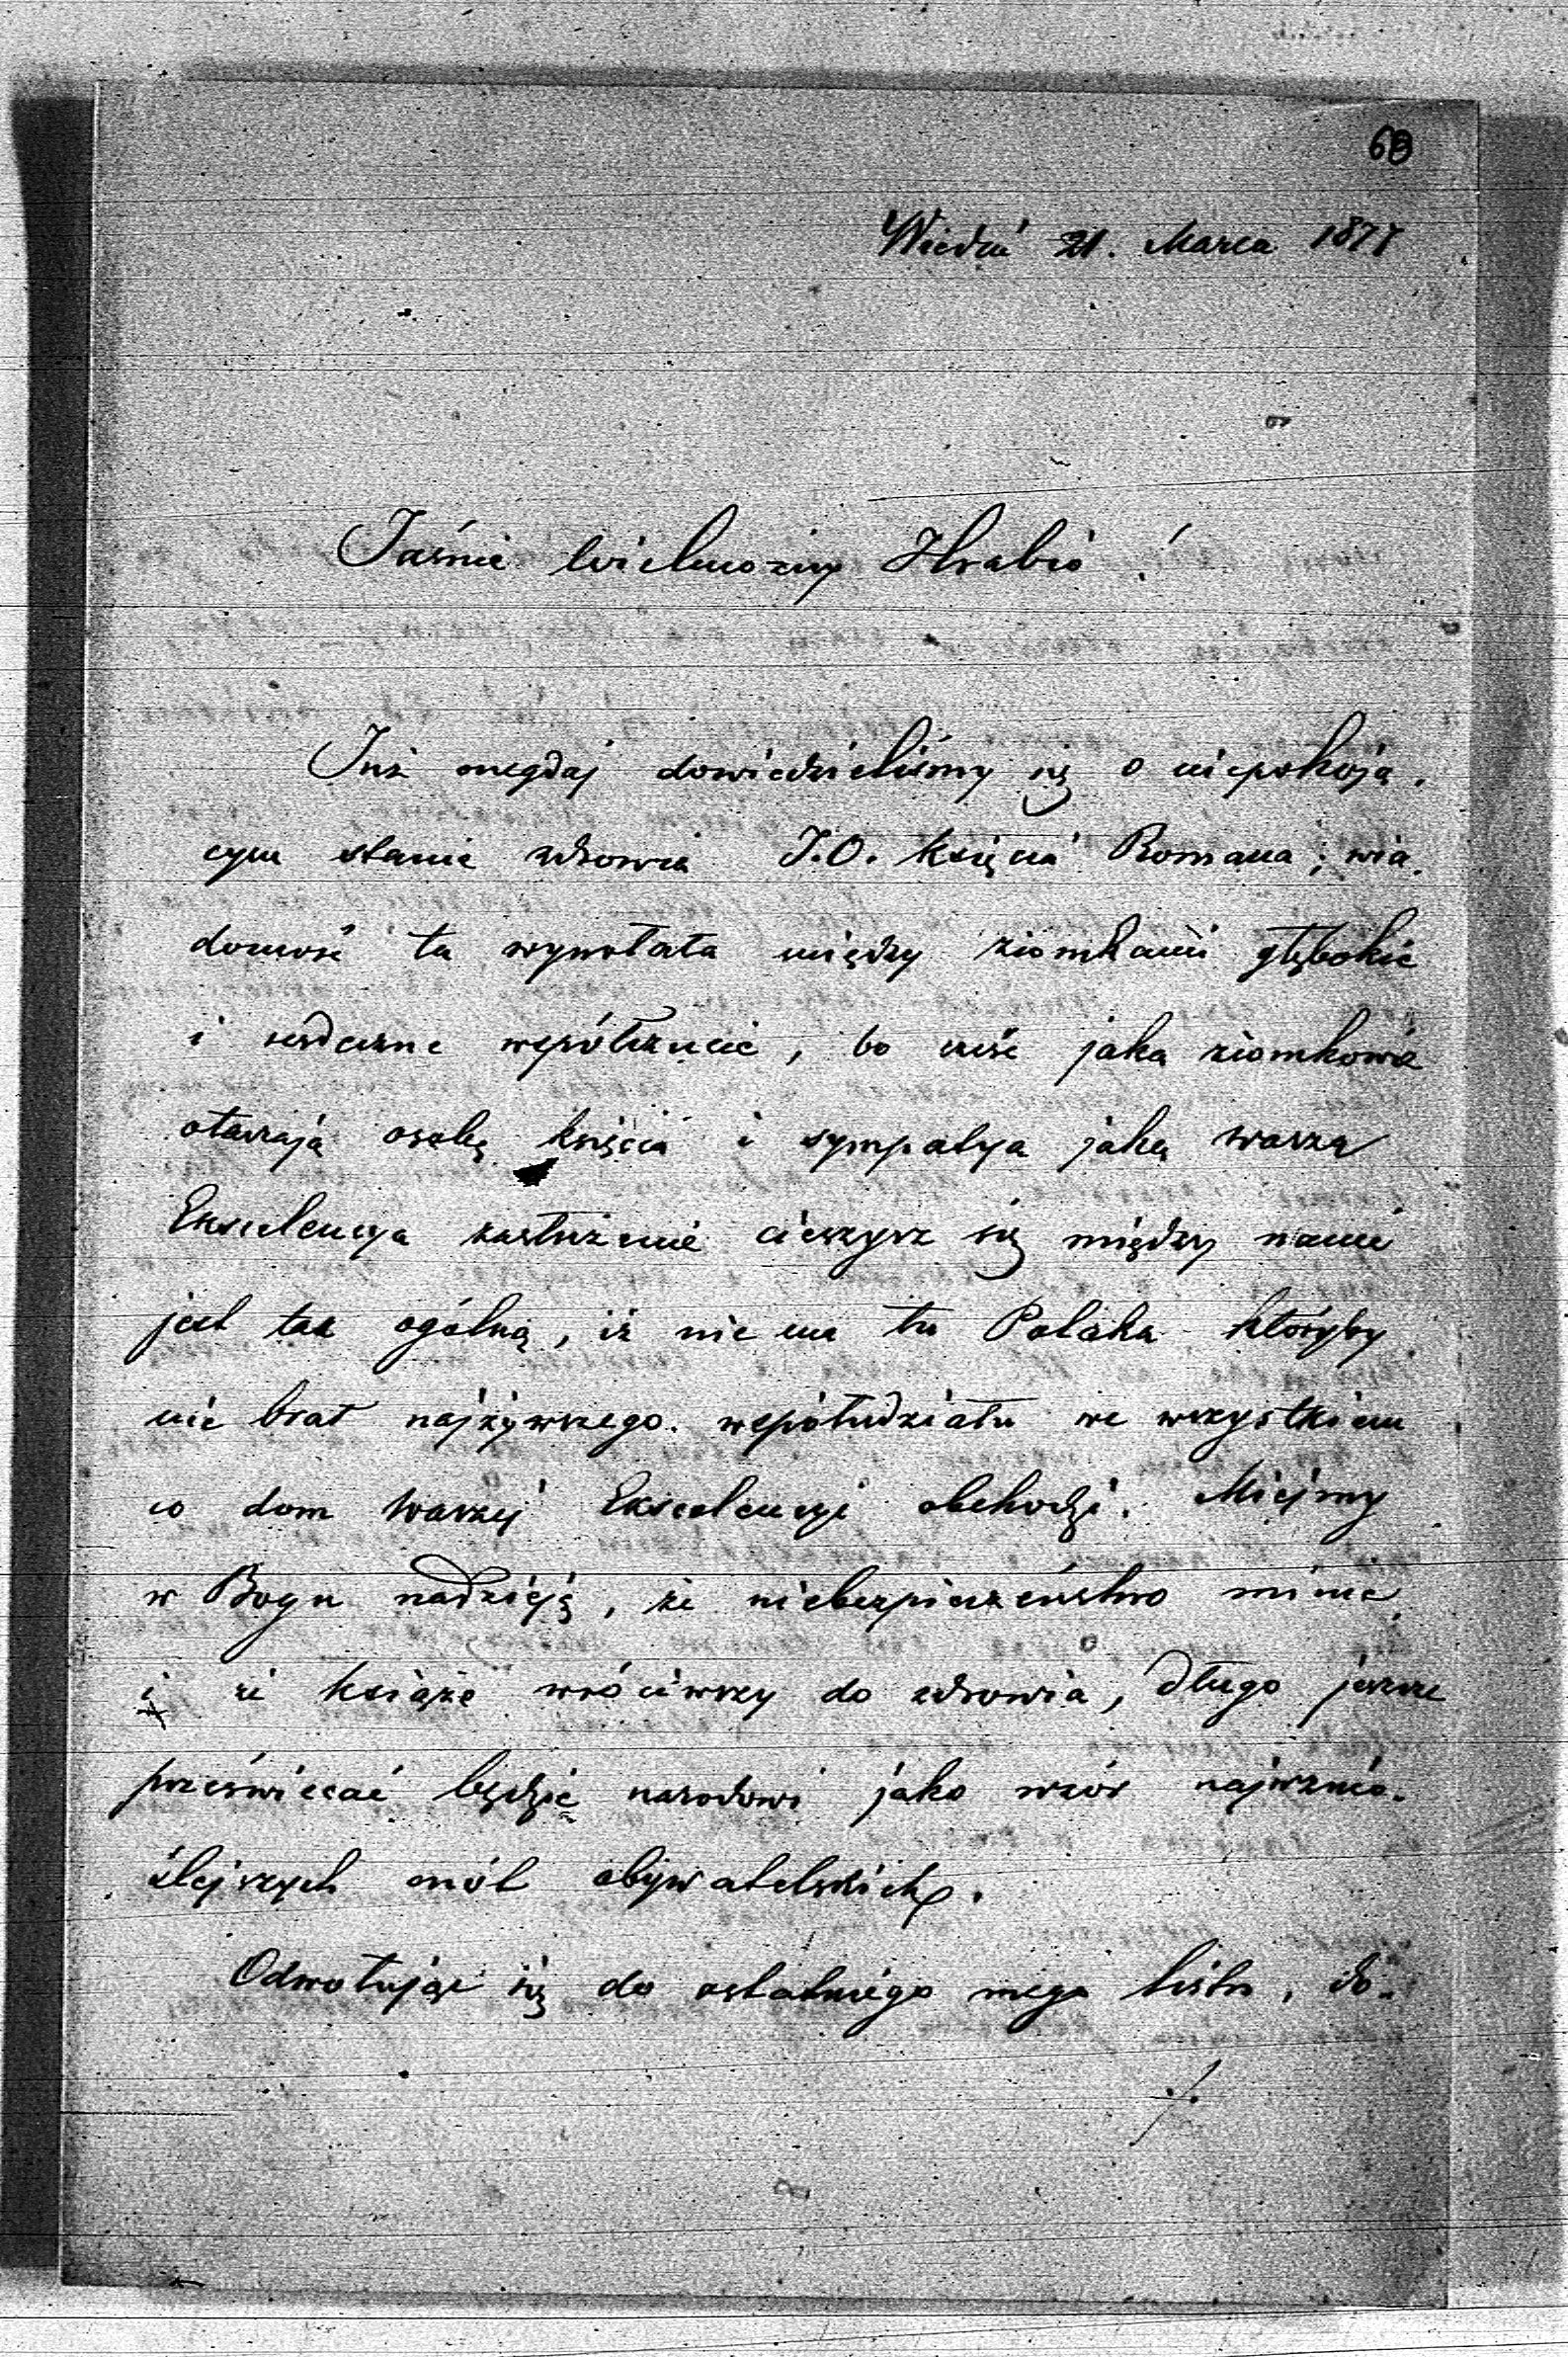 63
Wiedeń 21. Marca 1877
Jaśnie Wielmożny Hrabio!
Już onegdaj dowiedzieliśmy się o niepokoją-
cym stanie zdrowia J.O. księcia Romana; wia-
domość ta wywołała między ziomkami głębokie
i serdeczne współczucie, bo cześć jaką ziomkowie
otaczają osobę księcia i sympatya jaką Wasza
Ekscelencya zasłużenie cieszysz się między nami
jest tak ogólną, iż nie ma tu Polaka któryby
nie brał najżywszego współudziału we wszystkiem
co dom Waszej Ekscelencyi obchodzi. Miejmy
w Bogu nadzieję, że niebezpieczeństwo minie
i że książe wróciwszy do zdrowia, długo jeszcze
przyświecać będzie narodowi jako wzór najwznio-
ślejszych cnót obywatelskich.
Odwołując się do ostatniego mego listu, do-
./.